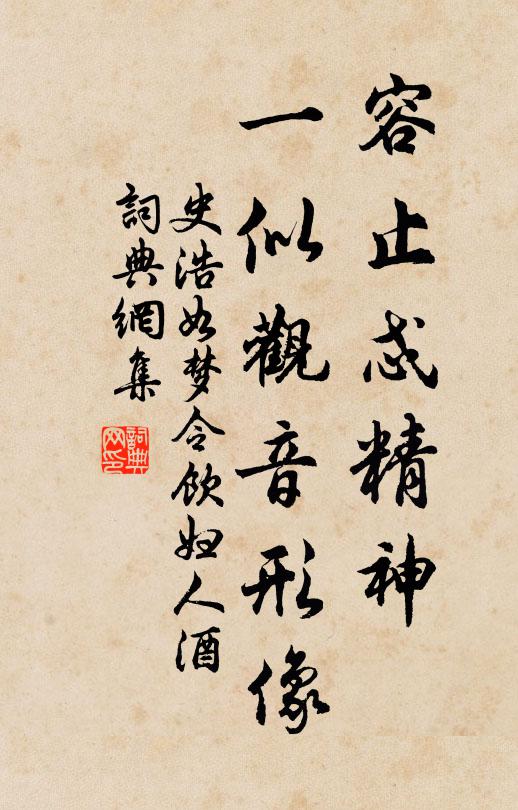 容止忒精神
一似觀音形像
史浩如梦令飲妇人酒
詞典網集
詞典
网印